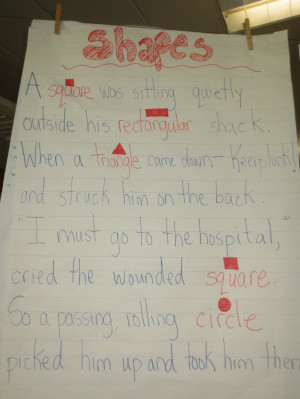 Shapes
A square was sitting quietly
outside his rectangular shack.
When a triangle came down-Keerplunk!
and struck him on the back.
"I must go to the hospital,"
cried the wounded square.
So a passing, rolling circle
picked him up and took him there